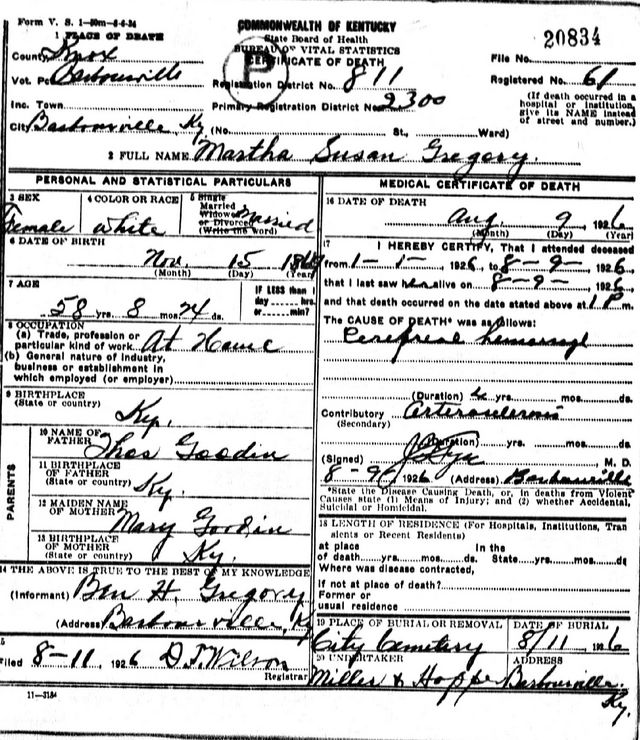 Form V. S. 1-50m-8-4-24
COMMONWEALTH OF KENTUCKY
State Board of Health
BUREAU OF VITAL STATISTICS
CERTIFICATE OF DEATH
20834
1 PLACE OF DEATH
County Knox
Vot. Pct Barbourville
Inc. Town
City Barbourville, Ky. (No. St., Ward)
P
Registration District No. 811
Primary Registration District No. 2300
File No.
Registered No. 61
(If death occurred in a hospital or institution, give its NAME instead of street and number.)
2 FULL NAME Martha Susan Gregory.
PERSONAL AND STATISTICAL PARTICULARS
3 SEX
Female
4 COLOR OR RACE
White
5 Single
Married
Widowed
or Divorced
(Write the word)
Married
6 DATE OF BIRTH
Nov. 15
(Month) (Day) (Year)
7 AGE
58 yrs. 8 mos. 24 ds.
IF LESS than 1
day hrs.
or min?
8 OCCUPATION
(a) Trade, profession or
particular kind of work At Home
(b) General nature of industry,
business or establishment in
which employed (or employer)
9 BIRTHPLACE
(State or country)
Ky.
PARENTS
10 NAME OF
FATHER
Thos Goodin
11 BIRTHPLACE
OF FATHER
(State or country)
Ky.
12 MAIDEN NAME
OF MOTHER
Mary Goodin
13 BIRTHPLACE
OF MOTHER
(State or country)
Ky.
14 THE ABOVE IS TRUE TO THE BEST OF MY KNOWLEDGE
(Informant) Ben H. Gregory
(Address) Barbourville, Ky
15
Filed 8-11, 1926 D.T. Wilson
Registrar
11-3184
MEDICAL CERTIFICATE OF DEATH
16 DATE OF DEATH
Aug 9, 1926
(Month) (Day) (Year)
17 I HEREBY CERTIFY, That I attended deceased
from 1-1-1926, to 8-9-1926
that I last saw her alive on 8-9-1926,
and that death occurred on the date stated above at 1 P m.
The CAUSE OF DEATH* was as follows:
(Duration) yrs. mos. ds.
Contributory
(Secondary)
(Duration) yrs. mos. ds.
(Signed) M. D.
8-9 1926 (Address) Barbourville
*State the Disease Causing Death, or, in deaths from Violent
Causes state (1) Means of Injury; and (2) whether Accidental,
Suicidal or Homicidal.
18 LENGTH OF RESIDENCE (For Hospitals, Institutions, Tran
sients or Recent Residents)
at place In the
of death yrs. mos. ds. State yrs. mos. ds
Where was disease contracted,
If not at place of death?
Former or
usual residence
19 PLACE OF BURIAL OR REMOVAL
City Cemetery
DATE OF BURIAL
8/11 1926
20 UNDERTAKER
Miller & Hopper
ADDRESS
Barbourville
Ky.